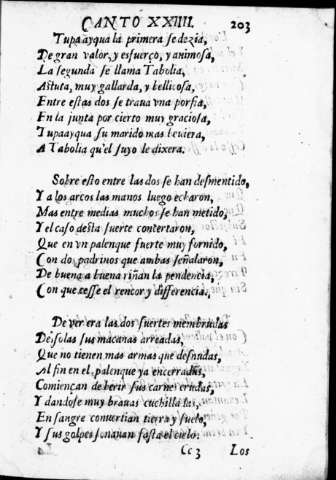 CANTO XXIIII. 203
Tupaayqua la primera se dezia,
De gran valor, y esfuerço, y animosa,
La segunda se llama Tabolia,
Astuta, muy gallarda, y bellicosa,
Entre estas dos se traua vna porfia,
En la junta por cierto muy graciosa,
Tupaayqua su marido mas beuiera,
A Tabolia qu'el suyo le dixera.
Sobre esto entre las dos se han desmentido,
Y a los arcos las manos luego echaron,
Mas entre medias muchos se han metido,
Y el caso desta suerte concertaron,
Que en vn palenque fuerte muy fornido,
Con dos padrinos que ambas señalaron,
De buena a buena riñan la pendencia,
Con que cesse el rencor y differencia.
De ver era las dos fuertes membrudas
De solas sus macanas arreadas,
Que no tienen mas armas que desnudas,
Al fin en el palenque ya encerradas,
Comiençan de herir sus carnes crudas,
Y dandose muy brauas cuchilladas,
En sangre conuertian tierra y suelo,
Y sus golpes sonauan hasta el cielo.
Cc 3 Los